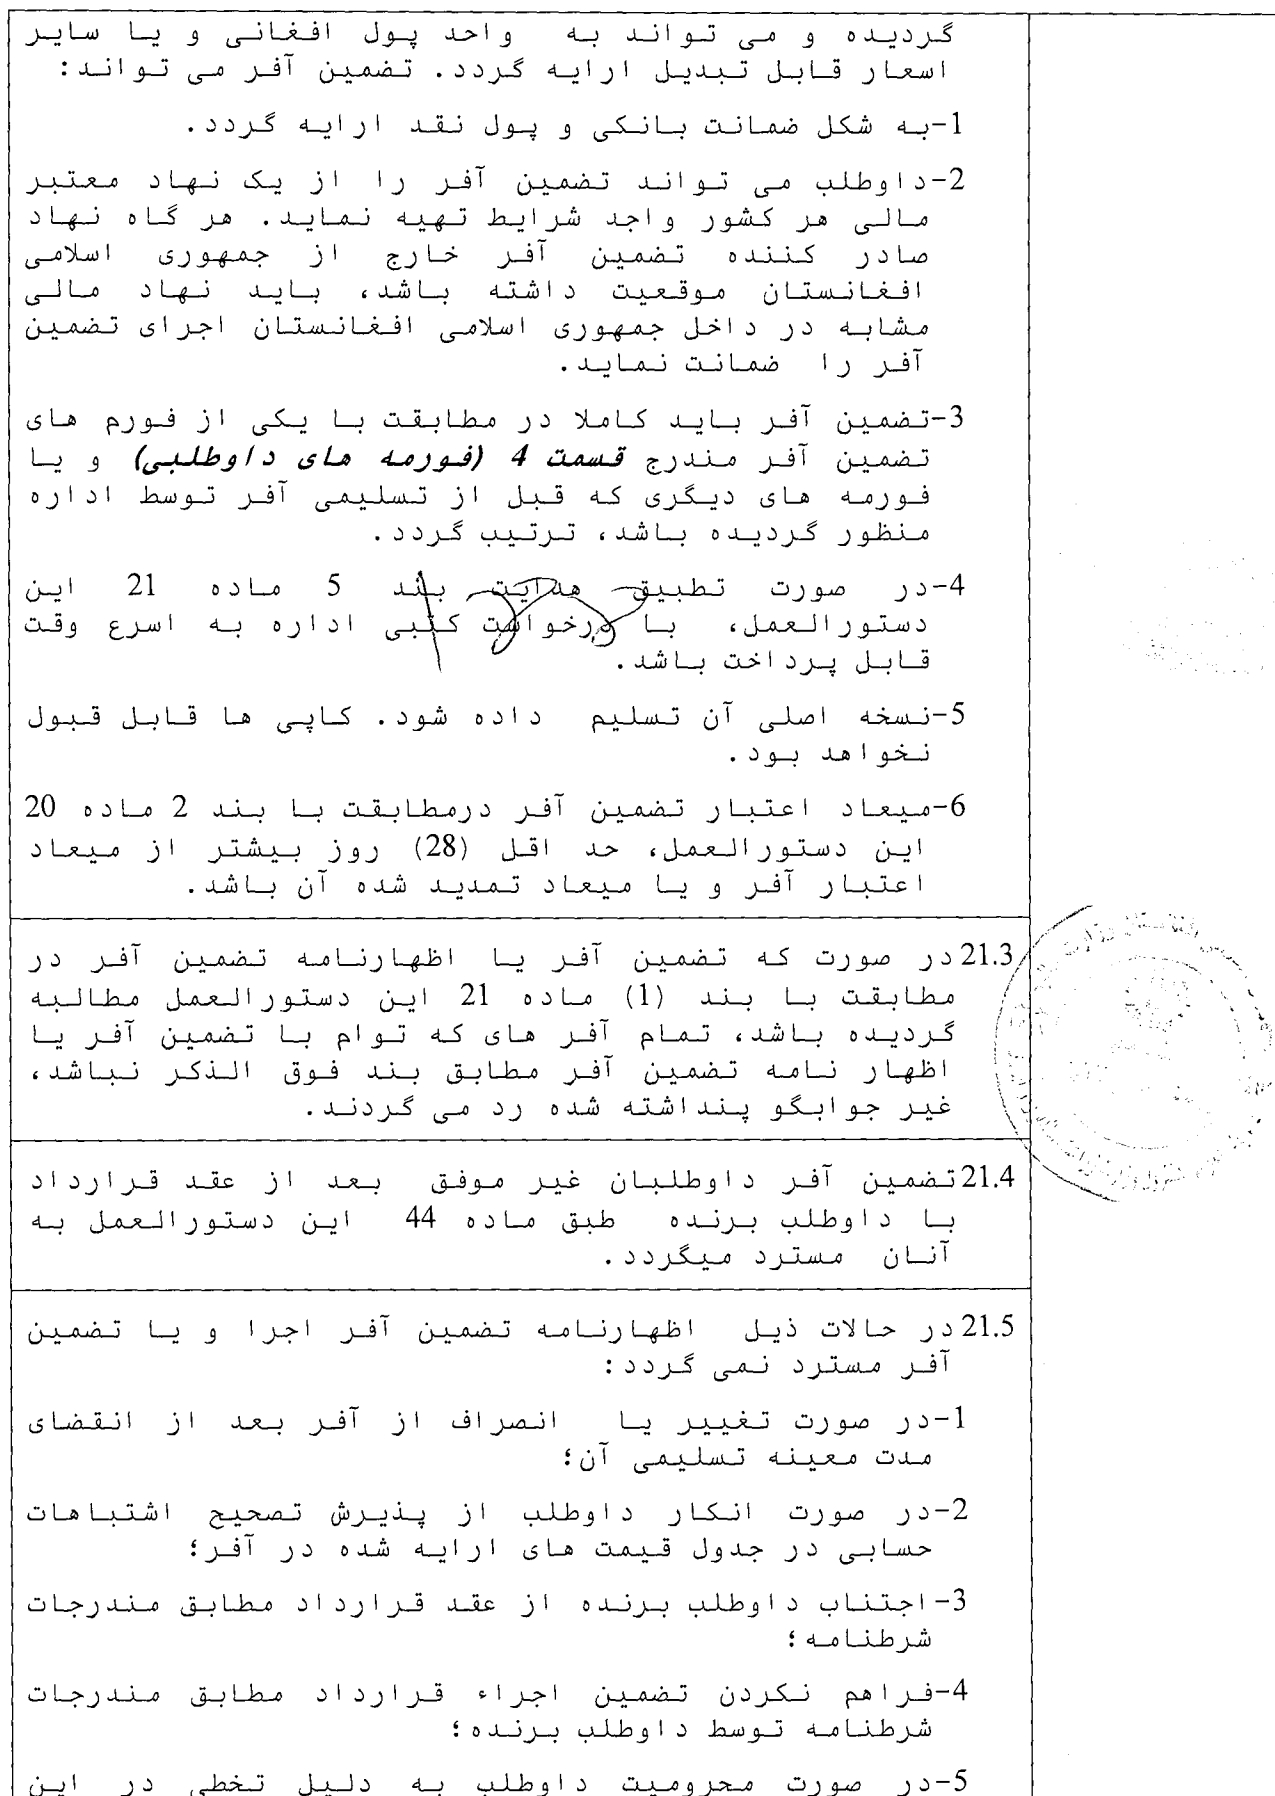 گردیده و می تواند به واحد پول افغانی و یا سایر
اسعار قابل تبدیل ارایه گردد. تضمین آفر می تواند:
1-به شکل ضمانت بانکی و پول نقد ارایه گردد.
2-داوطلب می تواند تضمین آفر را از یک نهاد معتبر
مالی هر کشور واجد شرایط تهیه نماید. هر گاه نهاد
صادر کننده تضمین آفر خارج از جمهوری اسلامی
افغانستان موقعیت داشته باشد، باید نهاد مالی
مشابه در داخل جمهوری اسلامی افغانستان اجرای تضمین
آفر را ضمانت نماید.
3-تضمین آفر باید کاملا در مطابقت با یکی از فورم های
تضمین آفر مندرج قسمت 4 (فورمه های داوطلبی) و یا
فورمه های دیگری که قبل از تسلیمی آفر توسط اداره
منظور گردیده باشد، ترتیب گردد.
4-در صورت تطبیق هدایت بند 5 ماده 21 این
دستورالعمل، با درخواست کتبی اداره به اسرع وقت
قابل پرداخت باشد.
5-نسخه اصلی آن تسلیم داده شود. کاپی ها قابل قبول
نخواهد بود.
6-میعاد اعتبار تضمین آفر درمطابقت با بند 2 ماده 20
این دستورالعمل، حد اقل (28) روز بیشتر از میعاد
اعتبار آفر و یا میعاد تمدید شده آن باشد.
21.3 در صورت که تضمین آفر یا اظهارنامه تضمین آفر در
مطابقت با بند (1) ماده 21 این دستورالعمل مطالبه
گردیده باشد، تمام آفر های که توام با تضمین آفر یا
اظهار نامه تضمین آفر مطابق بند فوق الذکر نباشد،
غیر جوابگو پنداشته شده رد می گردند.
21.4 تضمین آفر داوطلبان غیر موفق بعد از عقد قرارداد
با داوطلب برنده طبق ماده 44 این دستورالعمل به
آنان مسترد میگردد.
21.5 در حالات ذیل اظهارنامه تضمین آفر اجرا و یا تضمین
آفر مسترد نمی گردد:
1-در صورت تغییر یا انصراف از آفر بعد از انقضای
مدت معینه تسلیمی آن؛
2-در صورت انکار داوطلب از پذیرش تصحیح اشتباهات
حسابی در جدول قیمت های ارایه شده در آفر؛
3-اجتناب داوطلب برنده از عقد قرارداد مطابق مندرجات
شرطنامه؛
4-فراهم نکردن تضمین اجراء قرارداد مطابق مندرجات
شرطنامه توسط داوطلب برنده؛
5-در صورت محرومیت داوطلب به دلیل تخطی در این